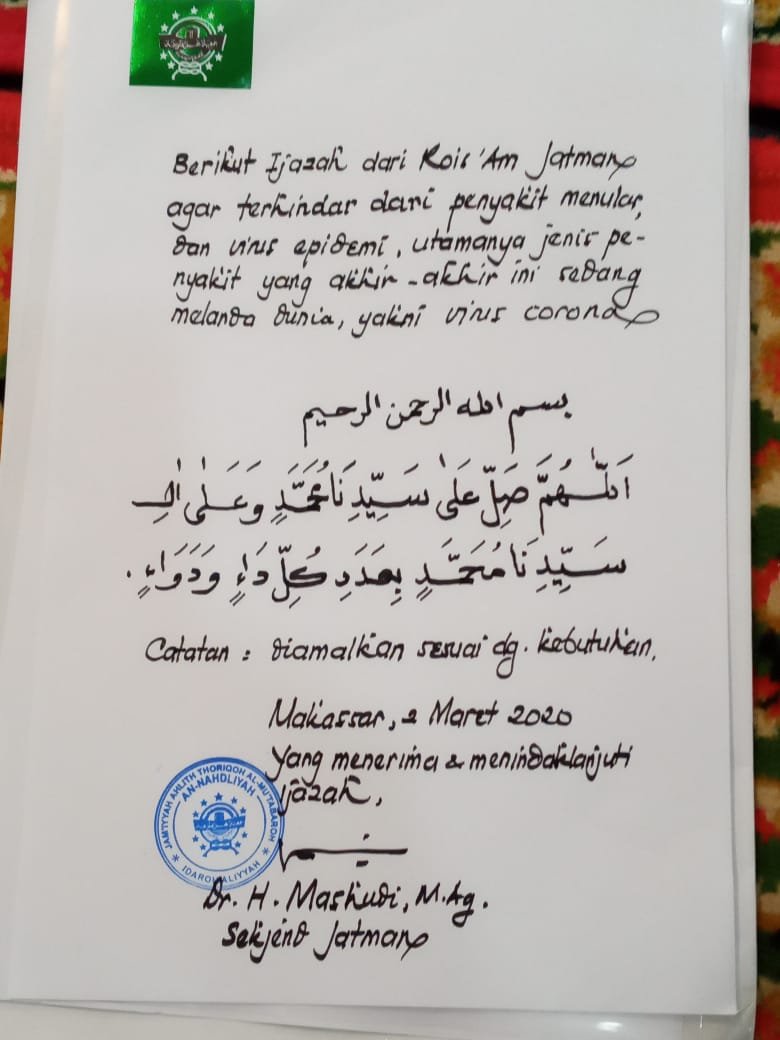 Berikut Ijazah dari Rois 'Am Jatman
agar terhindar dari penyakit menular,
dan virus epidemi, utamanya jenis pe-
nyakit yang akhir-akhir ini sedang
melanda dunia, yakni virus corona
بسم الله الرحمن الرحيم
اَللّٰهُمَّ صَلِّ عَلٰى سَيِّدِنَا مُحَمَّدٍ وَعَلٰى اٰلِ
سَيِّدِنَا مُحَمَّدٍ بِعَدَدِ كُلِّ دَاءٍ وَدَوَاءٍ.
Catatan : diamalkan sesuai dg. kebutuhan.
Makassar, 2 Maret 2020
Yang menerima & menindaklanjuti
Ijazah,
JAM'IYYAH AHLITH THORIQOH AL-MU'TABAROH
AN-NAHDLIYAH
IDAROH ALIYYAH
Dr. H. Mashudi, M.Ag.
Sekjend Jatman